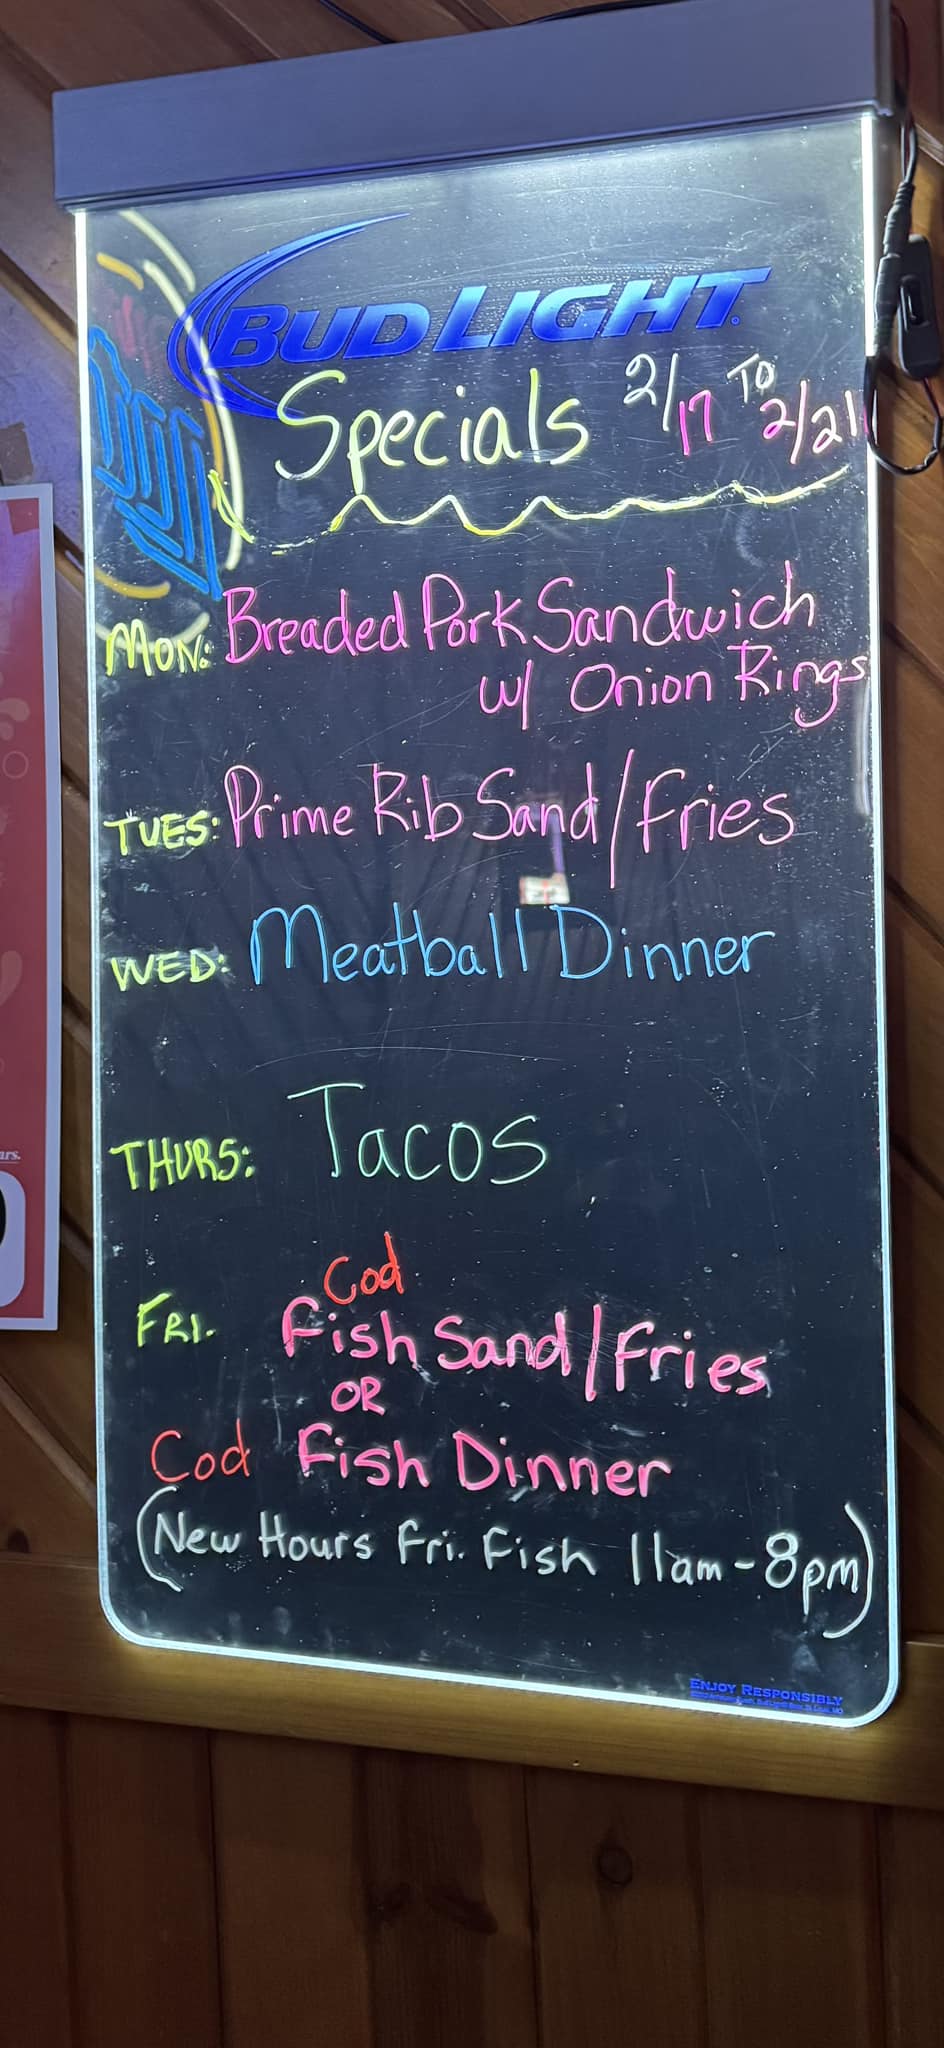 BUD LIGHT
Specials 2/17 TO 2/21
MON: Breaded Pork Sandwich
w/ Onion Rings
TUES: Prime Rib Sand/Fries
WED: Meatball Dinner
THURS: Tacos
Cod
FRI. Fish Sand/Fries
OR
Cod Fish Dinner
(New Hours Fri. Fish 11am-8pm)
ENJOY RESPONSIBLY
ars.